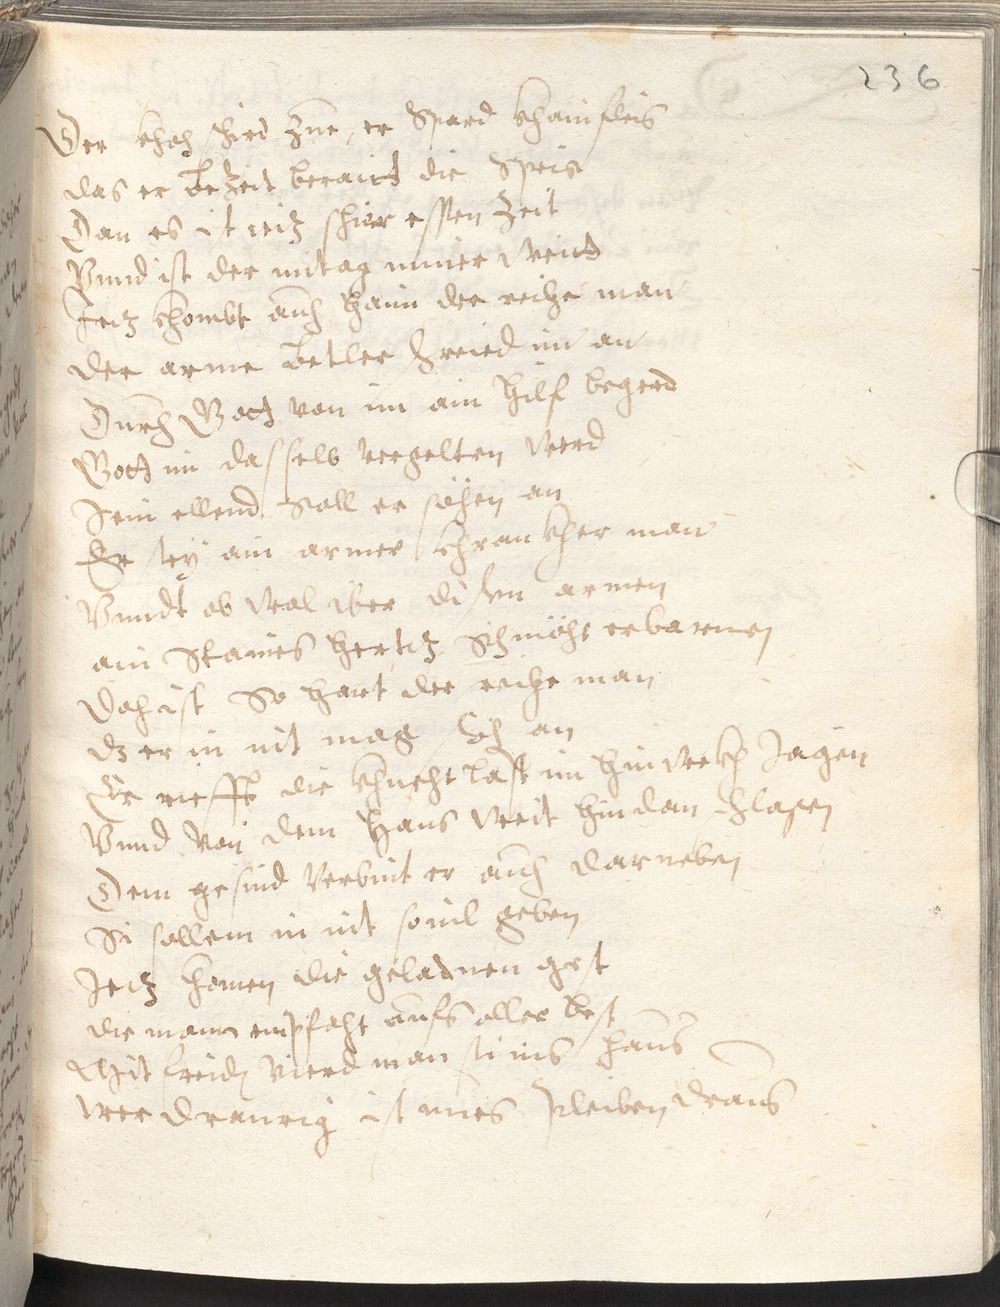 236
Der khoch schird zue, er spard khain fleis
das er bezeit beraitt die speis
Dan es ist ietz schier essen zeit
Vnnd ist der mitag nimer weit
Jetz khombt auch haim der reiche man
der arme betler schreied im an
Durch Gott von im ain hilf begerd
Gott im dasselb vergelten werd
sein ellend soll er sähen an
Er sey ain armer khrankher man
Vnndt ob wol iber disen armen
ain staines hertz sich möcht erbarmen
doch ist so hart der reiche man
dz er in nit mag sech an
Er riefft die khnecht last im hinwekh Jagen
Vnnd von dem haus weit hindan schlagen
Dem gesind verbiut er auch darneben
Si sollem im nit souil geben
Jetz khomen die geladnen gest
die mann empfaht aufs aller best
Mit freiden wierd man si ins haus
wer draurig ist mues pleiben draus